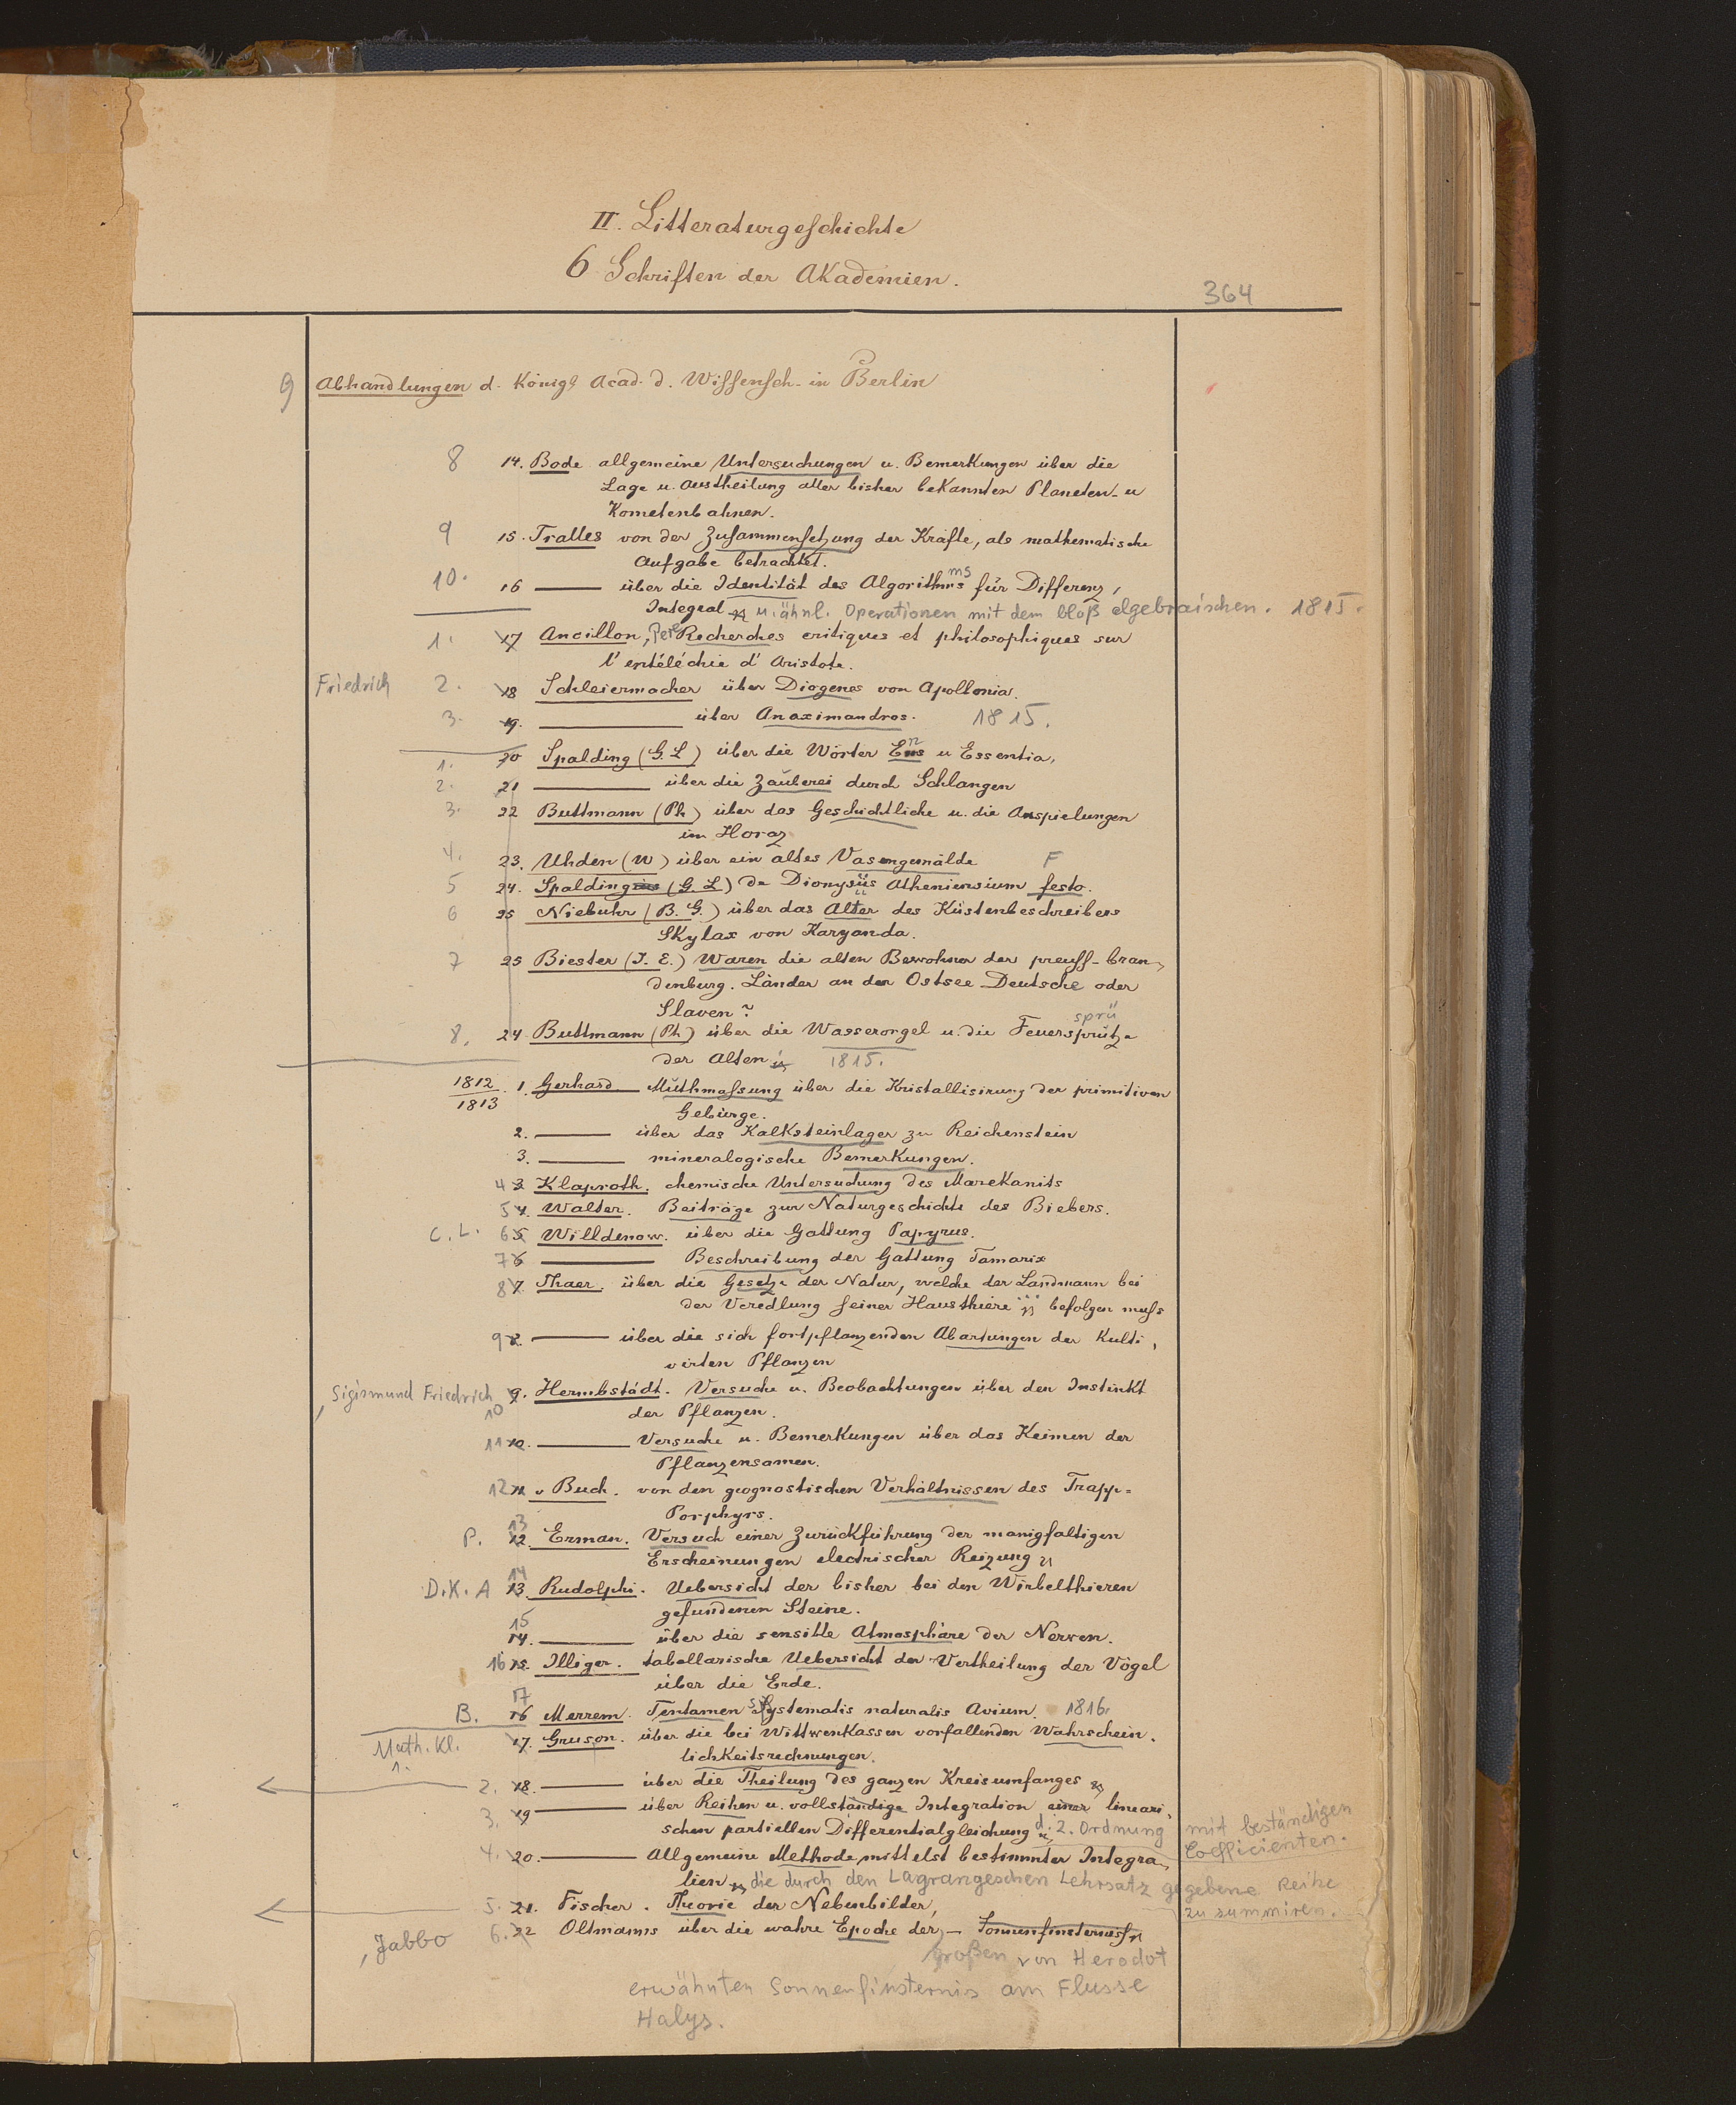 II. Litteraturgeschichte
6 Schriften der Akademien.
364
9 Abhandlungen d. Königl Acad. d. Wissensch. in Berlin
8 14. Bode allgemeine Untersuchungen u. Bemerkungen über die
Lage u. Austheilung aller bisher bekannten Planeten- u
Kometenbahnen.
9 15. Tralles von der Zusammensetzung der Kräfte, als mathematische
Aufgabe betrachtet.
10. 16 — über die Identität des Algorithms für Differenz,
Integral u. ähnl. Operationen mit dem bloß algebraischen. 1815.
1. 17 Ancillon, Père Recherches critiques et philosophiques sur
l'entéléchie d'Aristote.
Friedrich 2. 18 Schleiermacher über Diogenes von Apollonia.
3. 19. — über Anaximandros. 1815.
1. 20 Spalding (G. L) über die Wörter Ens u Essentia,
2. 21 — über die Zauberei durch Schlangen
3. 22 Buttmann (Ph) über das Geschichtliche u. die Anspielungen
im Horaz
4. 23. Uhden (W) über ein altes Vasengemälde F
5 24. Spalding (G. L) de Dionysiis Atheniensium festo.
6 25 Niebuhr (B. G.) über das Alter des Küstenbeschreibers
Skylax von Karyanda.
7 25 Biester (J. E.) Waren die alten Bewohner der preuss-bran-
denburg. Länder an der Ostsee Deutsche oder
Slaven?
8. 24 Buttmann (Ph) über die Wasserorgel u. die Feuersprütze sprü
der Alten 1815.
1812/1813 1. Gerhard — Muthmassung über die Kristallisirung der primitiven
Gebürge.
2. — über das Kalksteinlager zu Reichenstein
3. — mineralogische Bemerkungen.
4 3 Klaproth. chemische Untersuchung des Marekanits
5 4. Walter. Beiträge zur Naturgeschichte des Biebers.
C. L. 6 5 Willdenow. über die Gattung Papyrus.
7 6 — Beschreibung der Gattung Tamarix
8 7. Thaer. über die Gesetze der Natur, welche der Landmann bei
der Veredlung seiner Hausthiere befolgen muss
9 8. — über die sich fortpflanzenden Abartungen der Kulti,
virten Pflanzen
, Sigismund Friedrich 9. Hermbstädt. Versuche u. Beobachtungen über den Instinkt
10 der Pflanzen.
11 10. — Versuche u. Bemerkungen über das Keimen der
Pflanzensamen.
12 11. v Buch. von den geognostischen Verhältnissen des Trapp-
Porphyrs.
P. 13 12. Erman. Versuch einer Zurückführung der manigfaltigen
Erscheinungen electrischer Reizung
D. K. A 14 13. Rudolphi. Uebersicht der bisher bei den Wirbelthieren
gefundenen Steine.
15 14. — über die sensible Atmosphäre der Nerven.
16 15. Illiger. tabellarische Uebersicht der Vertheilung der Vögel
über die Erde.
B. 17 16 Merrem. Tentamen Systematis naturalis Avium. 1816.
Math. Kl. 1. 17. Gruson. über die bei Wittwenkassen vorfallenden Wahrschein-
lichkeitsrechnungen.
2. 18. — über die Theilung des ganzen Kreisumfanges
3. 19 — über Reihen u. vollständige Integration einer lineari,
schen partiellen Differentialgleichung d. 2. Ordnung mit beständigen
Coefficienten.
4. 20. — Allgemeine Methode mittelst bestimmter Integra-
lien die durch den Lagrangeschen Lehrsatz gegebene Reihe
zu summiren.
5. 21. Fischer. Theorie der Nebenbilder,
, Jabbo 6. 22 Oltmanns über die wahre Epoche der — Sonnenfinsterniss
großen von Herodot
erwähnten Sonnenfinsternis am Flusse
Halys.